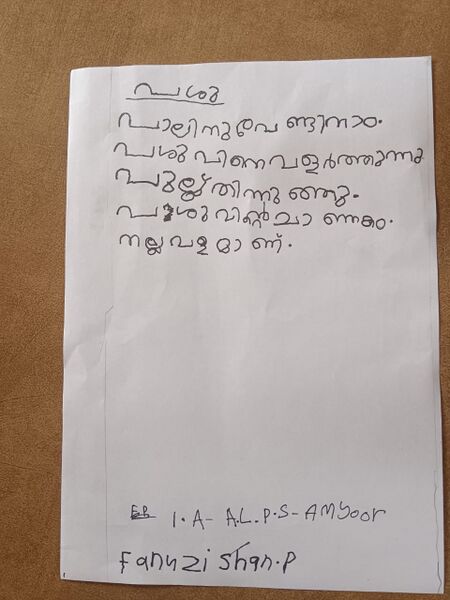 പശു
പാലിനുവേണ്ടിനാം.
പശുവിനെവളർത്തുന്നു
പുല്ല് തിന്നുന്നു.
പശുവിന്റെചാണകം.
നല്ലവളമാണ്.
1. A- A.L.P.S- AMYoor
Fanuzi Shan.P